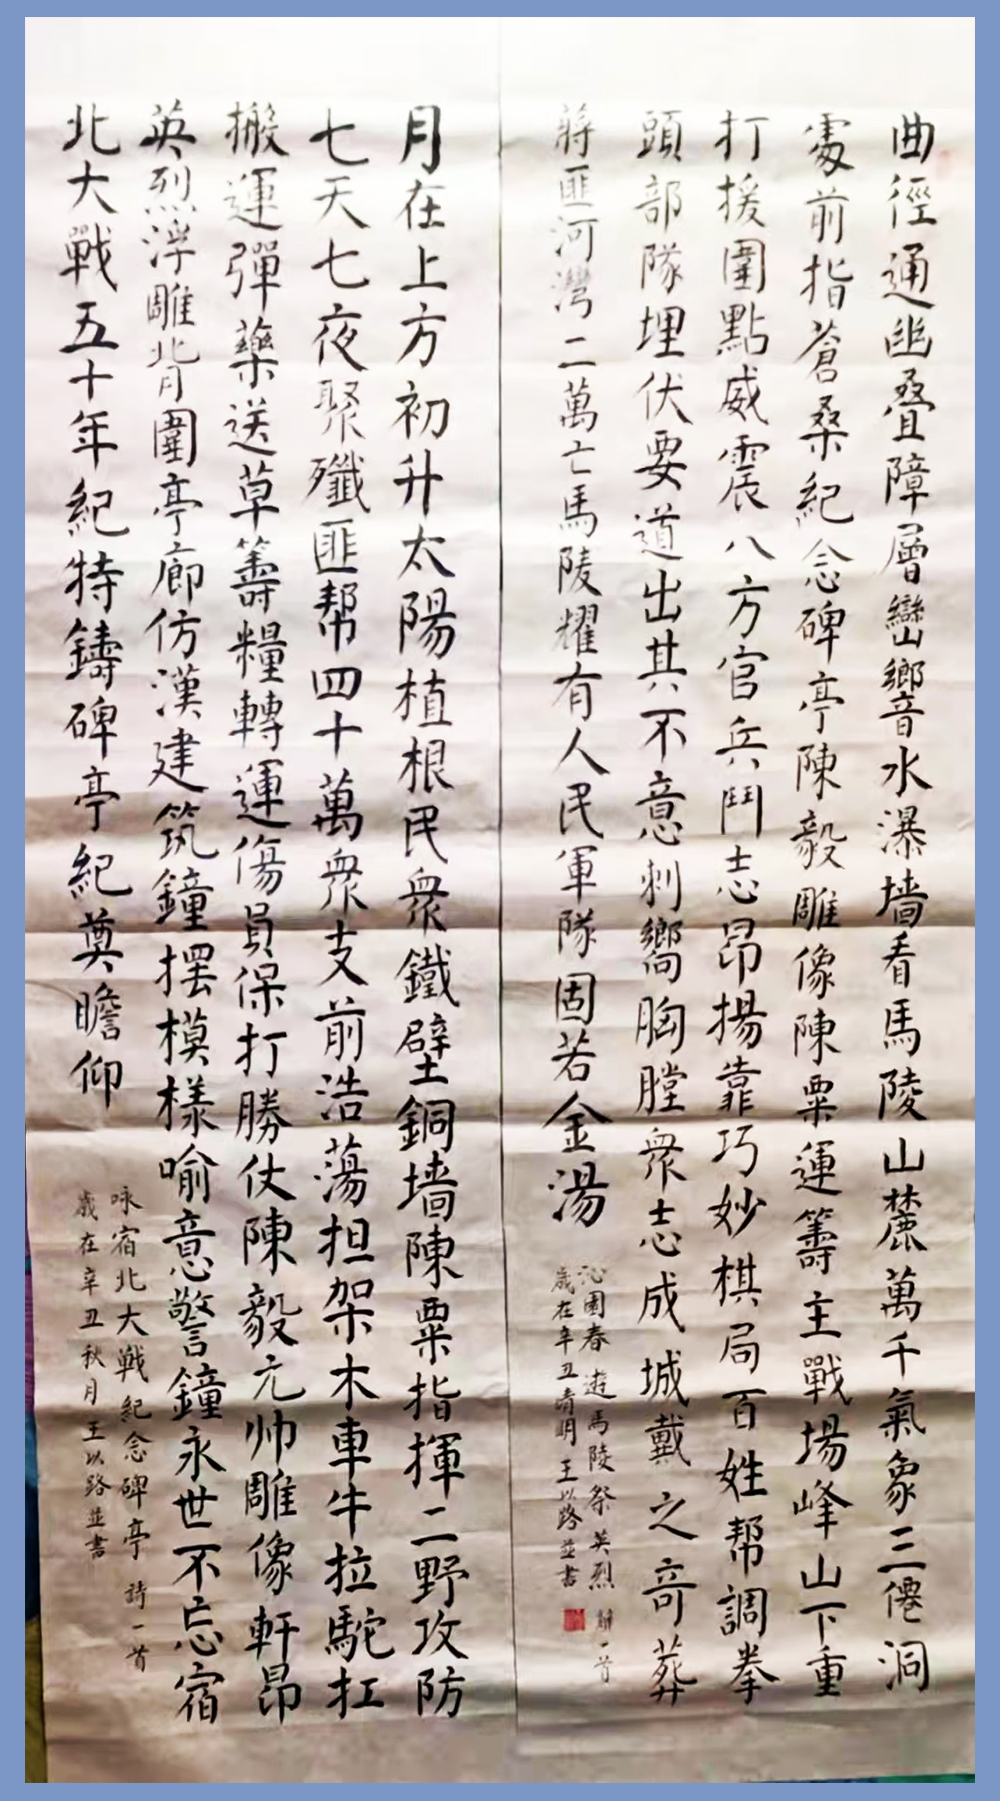 曲徑通幽叠障層巒響音水瀑墙看馬陵山麓萬千氣象三僊洞
處前指蒼桑紀念碑亭陳毅雕像陳粟運籌主戰場峰山下重
打援圍點威震八方官兵鬥志昂揚靠巧妙棋局百姓帮調拳
頭部隊埋伏要道出其不意刺嚮胸膛衆志成城戴之奇葬
蔣匪河灣二萬亡馬陵耀有人民軍隊固若金湯
沁園春 遊馬陵祭英烈 闋一首
歲在辛丑清明王以路並書
月在上方初升太陽植根民衆鐵壁銅墙陳粟指揮二野攻防
七天七夜聚殲匪帮四十萬衆支前浩蕩担架木車牛拉駝扛
搬運彈藥送草籌糧轉運傷員保打勝仗陳毅元帅雕像軒昂
英烈浮雕背圍亭廊仿漢建筑鐘擺模樣喻意警鐘永世不忘宿
北大戰五十年紀特鑄碑亭紀奠瞻仰
咏宿北大戰紀念碑亭 詩一首
歲在辛丑秋月王以路並書